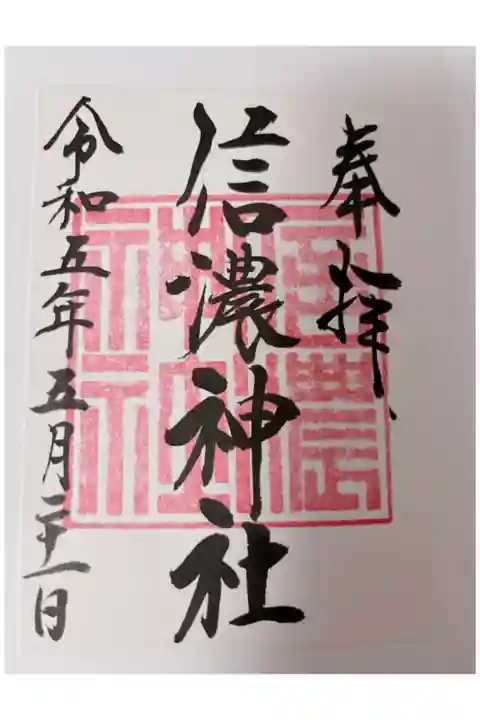 奉拝
信濃神社
令和五年五月二十一日